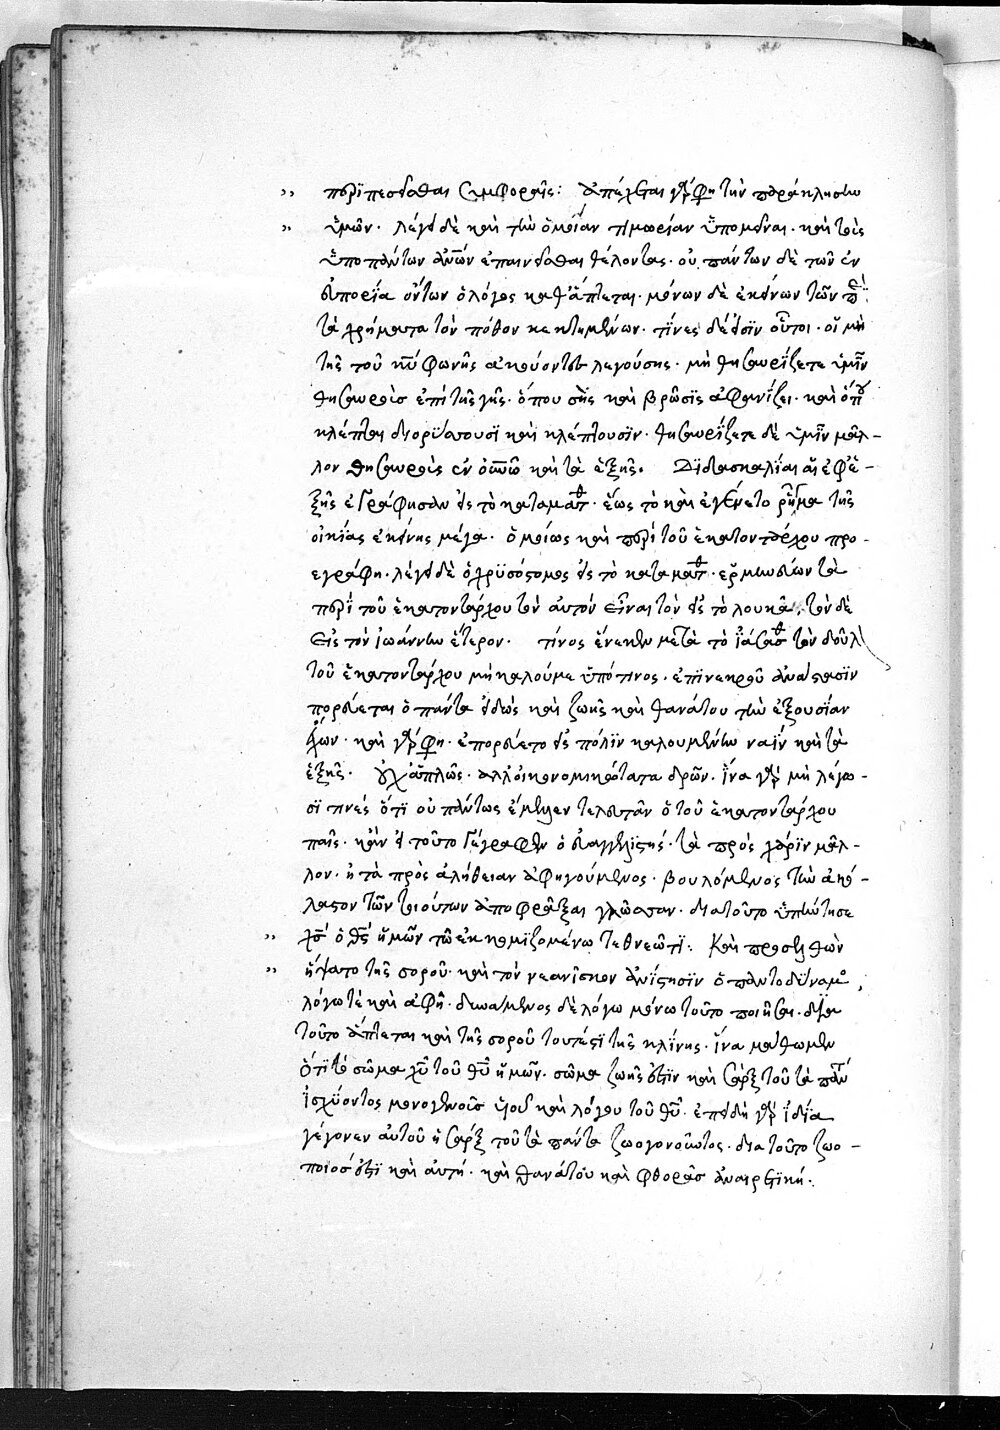 ,, περιπεσεῖσθαι συμφοραῖς: ἀπέχεται γάρ φη τὴν παράκλησιν
,, ὑμῶν. λέγει δὲ καὶ τὴν ὁμοίαν τιμωρίαν ὑπομεῖναι. καὶ τοῖς
ὑπο πάντων ἀνων ἐπαινεῖσθαι θέλοντας. οὐ πάντων δὲ τῶν ἐν
εὐπορία ὄντων ὁ λόγος καθάπτεται. μόνων δὲ ἐκείνων τῶν
τὰ χρήματα τὸν πόθον κεκτημένων. τίνες δέ εἰσϊν οὗτοι. οἱ μὴ
τῆς τοῦ κυ φωνῆς ἀκούοντες λεγούσης. μὴ θησαυρίζετε ὑμῖν
θησαυροὺς ἐπὶ τῆς γῆς. ὅπου σὴς καὶ βρῶσϊς ἀφανίζει. καὶ ὅπου
κλέπται διορϋσσουσϊ καὶ κλέπτουσϊν. θησαυρίζετε δὲ ὑμῖν μᾶλ-
λον θησαυροὺς ἐν οὐνῶ καὶ τὰ ἑξῆς. Διδασκαλίαι αἱ ἐφε-
ξῆς ἐγράφησαν εἰς τὸ κατα ματθ. ἕως τὸ καὶ ἐγένετο ῥῆγμα τῆς
οἰκίας ἐκείνης μέγα. ὁμοίως καὶ περὶ τοῦ ἑκατοντάρχου προ-
εγράφη. λέγει δὲ ὁ χρυσόστομος εἰς τὸ κατα ματθ. ἑρμηνεύων τὰ
περὶ τοῦ ἑκατοντάρχου τὸν αὐτὸν εἶναι τὸν εἰς τὸ λουκᾶ, τὸν δὲ
εἰς τὸν ἰωάννην ἕτερον. τίνος ἕνεκεν μετὰ τὸ ἰάσασθ τὸν δοῦλ
τοῦ ἑκατοντάρχου μὴ καλούμε ὑπό τινος. ἐπϊ νεκροῦ ἀνάστασϊν
πορεύεται ὁ πάντα εἰδὼς καὶ ζωῆς καὶ θανάτου τὴν ἐξουσίαν
ἔχων. καὶ γάρ φη. ἐπορεύετο εἰς πόλϊν καλουμένην ναΐν καὶ τὰ
ἑξῆς. οὐχ ἁπλῶς. ἀλλ' οἰκονομικώτατα δρῶν. ἵνα γὰρ μὴ λέγω-
σϊ τινὲς ὅτϊ οὐ πάντως ἔμελλεν τελευτᾶν ὁ τοῦ ἑκατοντάρχου
παῖς. κἂν εἰ τοῦτο γέγραφεν ὁ εὐαγγελιστής. τὰ πρὸς χάρϊν μᾶλ-
λον. ἢ τὰ πρὸς ἀλήθειαν ἀφηγούμενος. βουλόμενος τὴν ἀκό-
λαστον τῶν τοιούτων ἀποφράξαι γλῶσσαν. διατοῦτο ὑπήντησε
,, χς ὁ θς ἡμῶν τῶ ἐκκομϊζομένω τεθνεῶτϊ: Καὶ προσελθὼν
,, ἥψατο τῆς σοροῦ. καὶ τὸν νεανίσκον ἀνίστησϊν ὁ παντοδύναμο,
λόγω τὲ καὶ ἀφῆ. δυνάμενος δὲ λόγω μόνω τοῦτο ποιῆσαι. διὰ
τοῦτο ἅπτεται καὶ τῆς σοροῦ τουτέστϊ τῆς κλίνης. ἵνα μάθωμεν
ὅτϊ τὸ σῶμα χυ τοῦ θυ ἡμῶν. σῶμα ζωῆς ἐστϊν καὶ σὰρξ τοῦ τὰ πάντ
ἰσχύοντος μονογενοῦς υἱοῦ καὶ λόγου τοῦ θυ. ἐπειδὴ γὰρ ἰδία
γέγονεν αὐτοῦ ἡ σὰρξ τοῦ τὰ πάντα ζωογονοῦντος. διατοῦτο ζωο-
ποιός ἐστϊ καὶ αὐτή. καὶ θανάτου καὶ φθορᾶς ἀναιρετϊκή:.